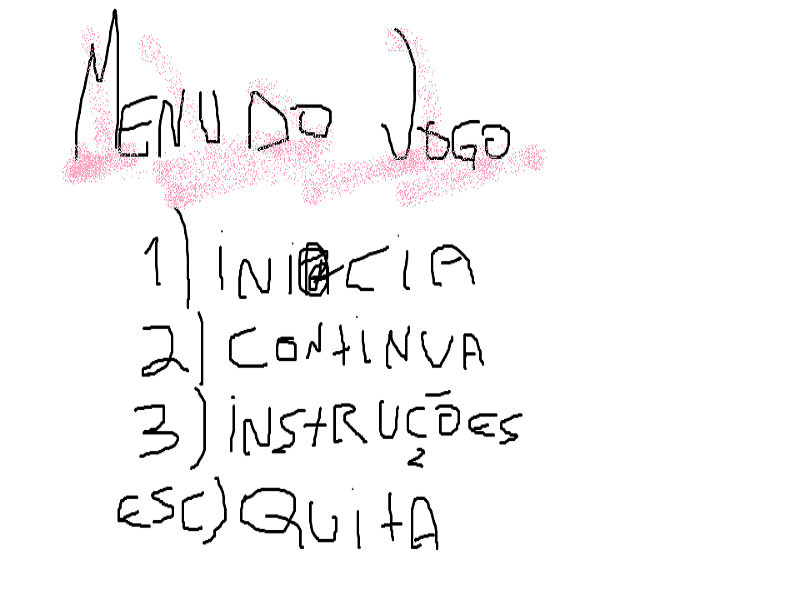 MENU DO JOGO
1) INICIA
2) CONTINUA
3) INSTRUÇÕES
ESC) QUITA